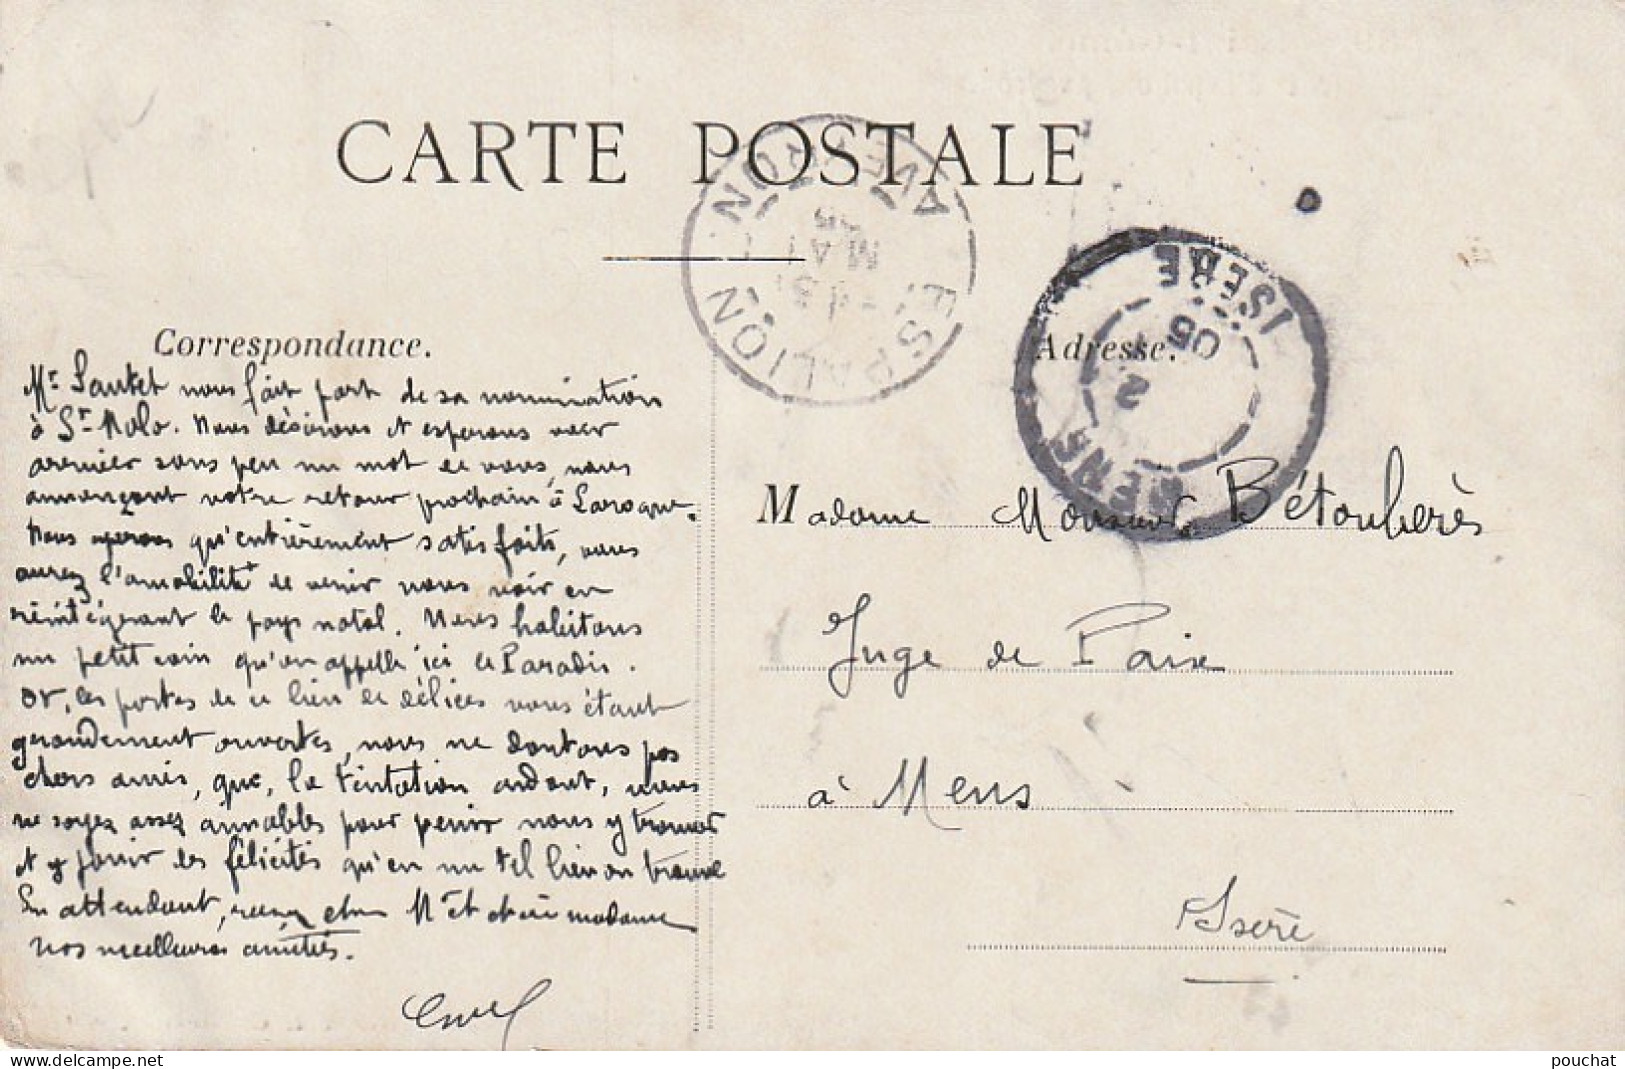 CARTE POSTALE
ESPALION AVEYRON
MAI
MENS ISERE
2
05
Correspondance.
Adresse.
Mr Sautet nous fait part de sa nomination
à St-Malo. Nous désirons et espérons voir
arriver sous peu un mot de vous, nous
annonçant votre retour prochain à Laroque.
Nous qu'entièrement satisfaits, vous
aurez l'amabilité de venir nous voir en
réintégrant le pays natal. Nous habitons
un petit coin qu'on appelle ici le Paradis.
Or, les portes de ce lieu de délices vous étant
grandement ouvertes, nous ne doutons pas
chers amis, que, la tentation aidant, vous
ne soyez assez aimables pour venir nous y trouver
et y jouir des félicités qu'en un tel lieu on trouve
En attendant, recevez cher Mr et chère madame
nos meilleures amitiés.
Madame Monsieur Bétouberès
Juge de Paix
à Mens
Isère
www.delcampe.net
pouchat